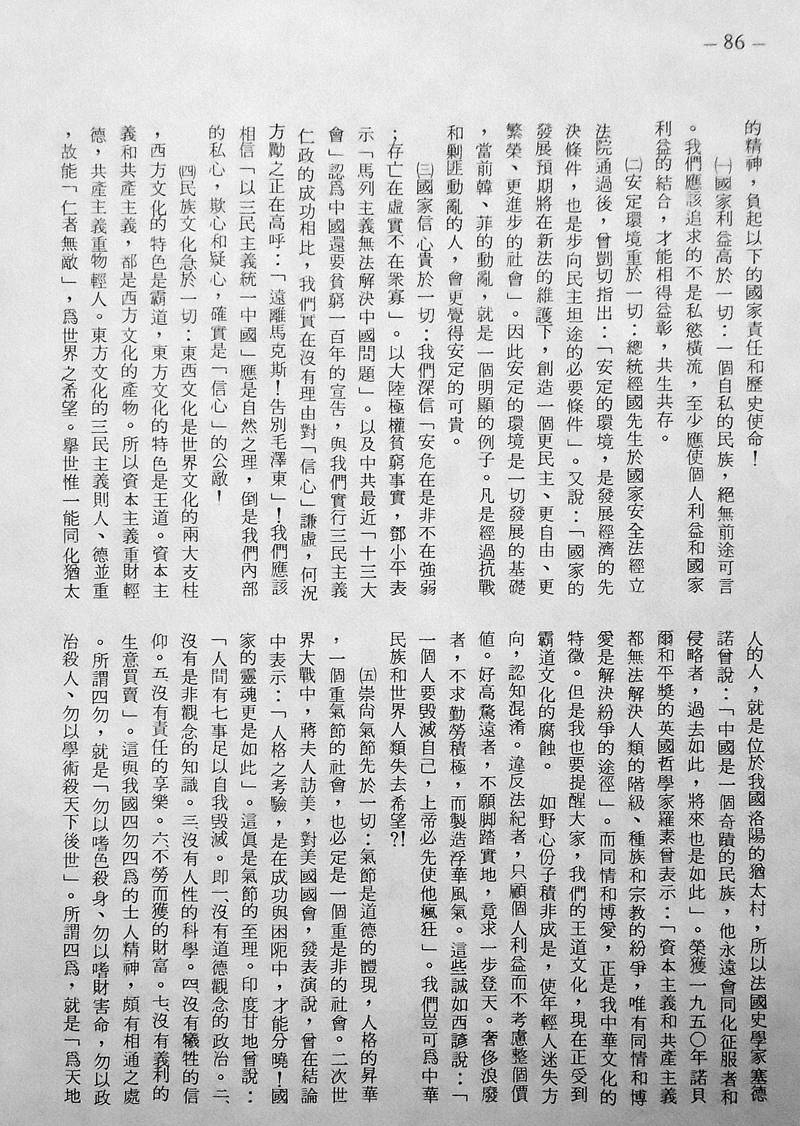 — 86 —
的精神，負起以下的國家責任和歷史使命！
㈠國家利益高於一切：一個自私的民族，絕無前途可言
。我們應該追求的不是私慾橫流，至少應使個人利益和國家
利益的結合，才能相得益彰，共生共存。
㈡安定環境重於一切：總統經國先生於國家安全法經立
法院通過後，曾剴切指出：「安定的環境，是發展經濟的先
決條件，也是步向民主坦途的必要條件」。又說：「國家的
發展預期將在新法的維護下，創造一個更民主、更自由、更
繁榮、更進步的社會」。因此安定的環境是一切發展的基礎
，當前韓、菲的動亂，就是一個明顯的例子。凡是經過抗戰
和剿匪動亂的人，會更覺得安定的可貴。
㈢國家信心貴於一切：我們深信「安危在是非不在強弱
；存亡在虛實不在衆寡」。以大陸極權貧窮事實，鄧小平表
示「馬列主義無法解決中國問題」。以及中共最近「十三大
會」認爲中國還要貧窮一百年的宣告，與我們實行三民主義
仁政的成功相比，我們實在沒有理由對「信心」謙虛，何況
方勵之正在高呼：「遠離馬克斯！告別毛澤東」！我們應該
相信「以三民主義統一中國」應是自然之理，倒是我們內部
的私心，欺心和疑心，確實是「信心」的公敵！
㈣民族文化急於一切：東西文化是世界文化的兩大支柱
，西方文化的特色是霸道，東方文化的特色是王道。資本主
義和共產主義，都是西方文化的產物。所以資本主義重財輕
德，共產主義重物輕人。東方文化的三民主義則人、德並重
，故能「仁者無敵」，爲世界之希望。舉世惟一能同化猶太
人的人，就是位於我國洛陽的猶太村，所以法國史學家塞德
諾曾說：「中國是一個奇蹟的民族，他永遠會同化征服者和
侵略者，過去如此，將來也是如此」。榮獲一九五〇年諾貝
爾和平獎的英國哲學家羅素曾表示：「資本主義和共產主義
都無法解決人類的階級、種族和宗教的紛爭，唯有同情和博
愛是解決紛爭的途徑」。而同情和博愛，正是我中華文化的
特徵。但是我也要提醒大家，我們的王道文化，現在正受到
霸道文化的腐蝕。　如野心份子積非成是，使年輕人迷失方
向，認知混淆。違反法紀者，只顧個人利益而不考慮整個價
值。好高騖遠者，不願脚踏實地，竟求一步登天。奢侈浪廢
者，不求勤勞積極，而製造浮華風氣。這些誠如西諺說：「
一個人要毀滅自己，上帝必先使他瘋狂」。我們豈可爲中華
民族和世界人類失去希望?!
㈤崇尚氣節先於一切：氣節是道德的體現，人格的昇華
，一個重氣節的社會，也必定是一個重是非的社會。二次世
界大戰中，蔣夫人訪美，對美國國會，發表演說，曾在結論
中表示：「人格之考驗，是在成功與困阨中，才能分曉！國
家的靈魂更是如此」。這眞是氣節的至理。印度甘地曾說：
「人間有七事足以自我毀滅。即一、沒有道德觀念的政治。二、
沒有是非觀念的知識。三、沒有人性的科學。四、沒有犧牲的信
仰。五、沒有責任的享樂。六、不勞而獲的財富。七、沒有義利的
生意買賣」。這與我國四勿四爲的士人精神，頗有相通之處
。所謂四勿，就是「勿以嗜色殺身、勿以嗜財害命，勿以政
治殺人、勿以學術殺天下後世」。所謂四爲，就是「爲天地